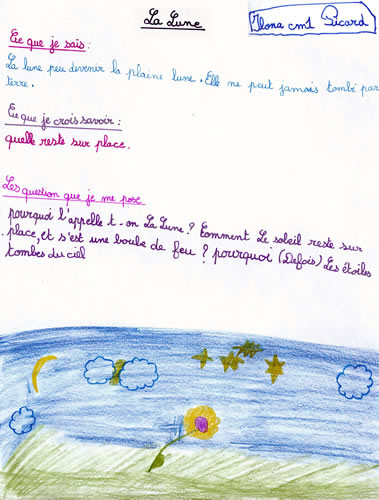 La Lune
Ilona cm1 Picard
Ce que je sais :
La lune peu devenir la plaine lune. Elle ne peut jamais tombé par
terre.
Ce que je crois savoir :
quelle reste sur place.
Les question que je me pose
pourquoi l'appelle t-on La Lune ? Comment Le soleil reste sur
place, et s'est une boule de feu ? pourquoi (Defois) Les étoiles
tombes du ciel